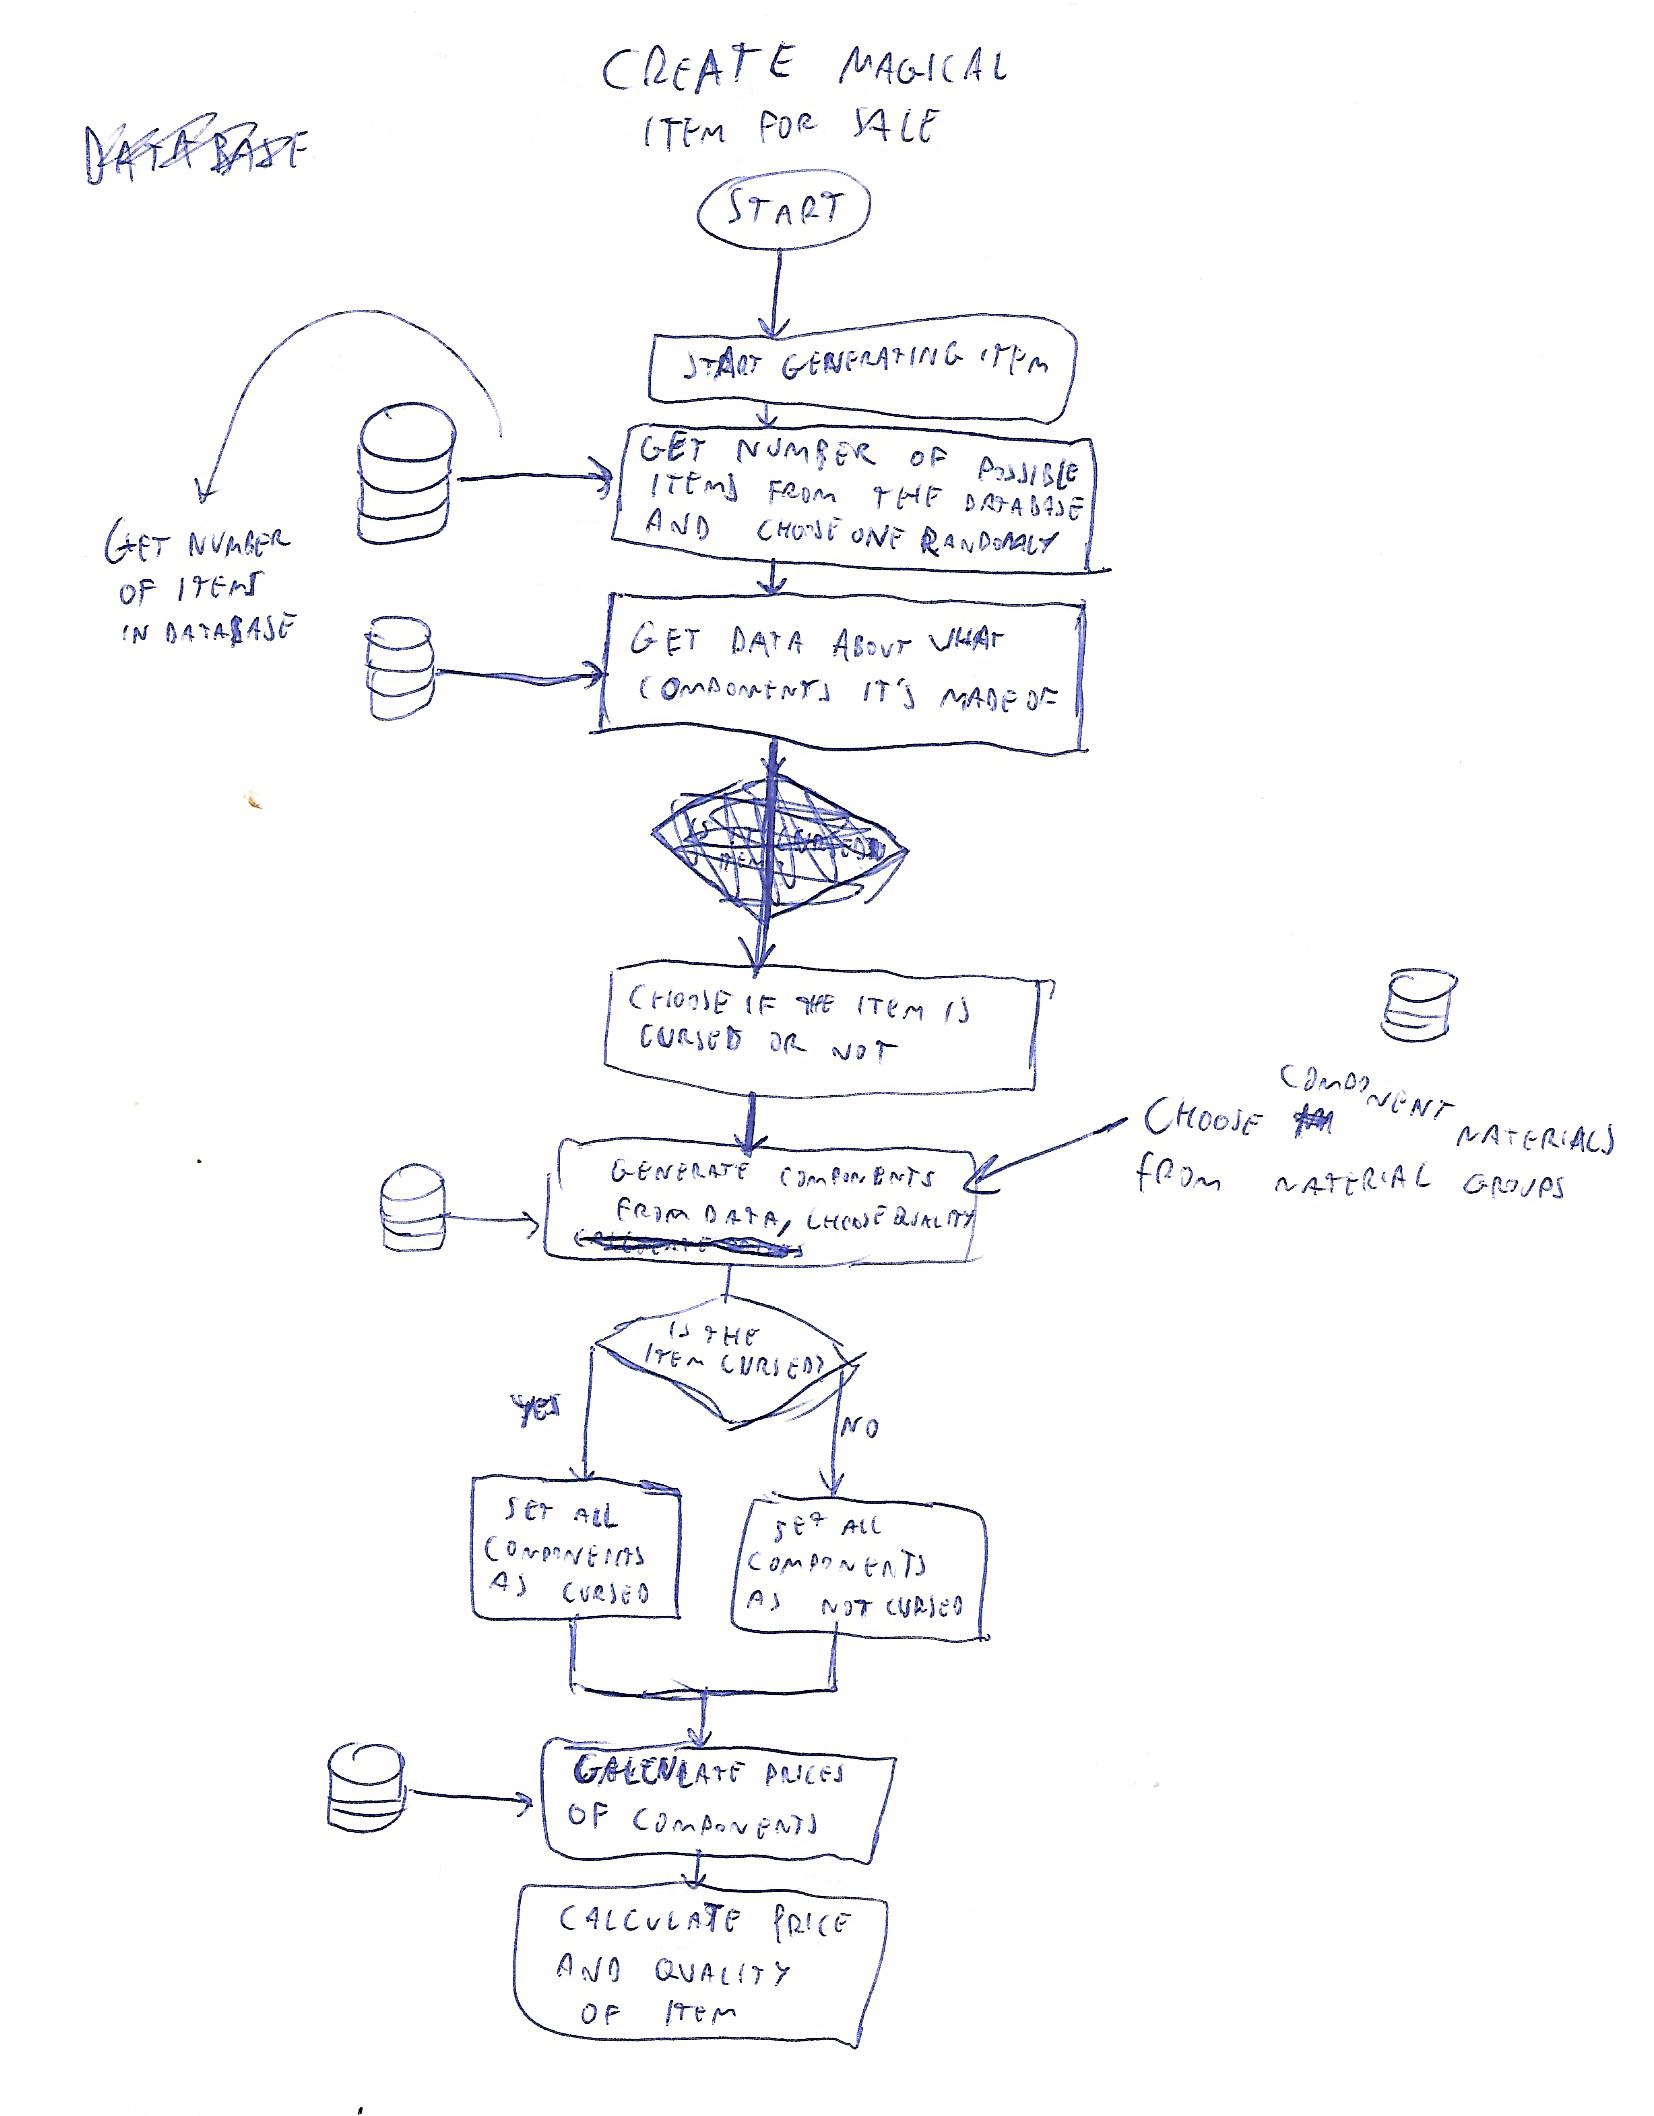 CREATE MAGICAL
ITEM FOR SALE
DATABASE
START
START GENERATING ITEM
GET NUMBER OF POSSIBLE
ITEMS FROM THE DATABASE
AND CHOOSE ONE RANDOMLY
GET NUMBER
OF ITEMS
IN DATABASE
GET DATA ABOUT WHAT
COMPONENTS IT'S MADE OF
CHOOSE IF THE ITEM IS
CURSED OR NOT
COMPONENT
CHOOSE MATERIALS
FROM MATERIAL GROUPS
GENERATE COMPONENTS
FROM DATA, CHOOSE QUALITY
IS THE
ITEM CURSED?
YES
NO
SET ALL
COMPONENTS
AS CURSED
SET ALL
COMPONENTS
AS NOT CURSED
CALCULATE PRICES
OF COMPONENTS
CALCULATE PRICE
AND QUALITY
OF ITEM